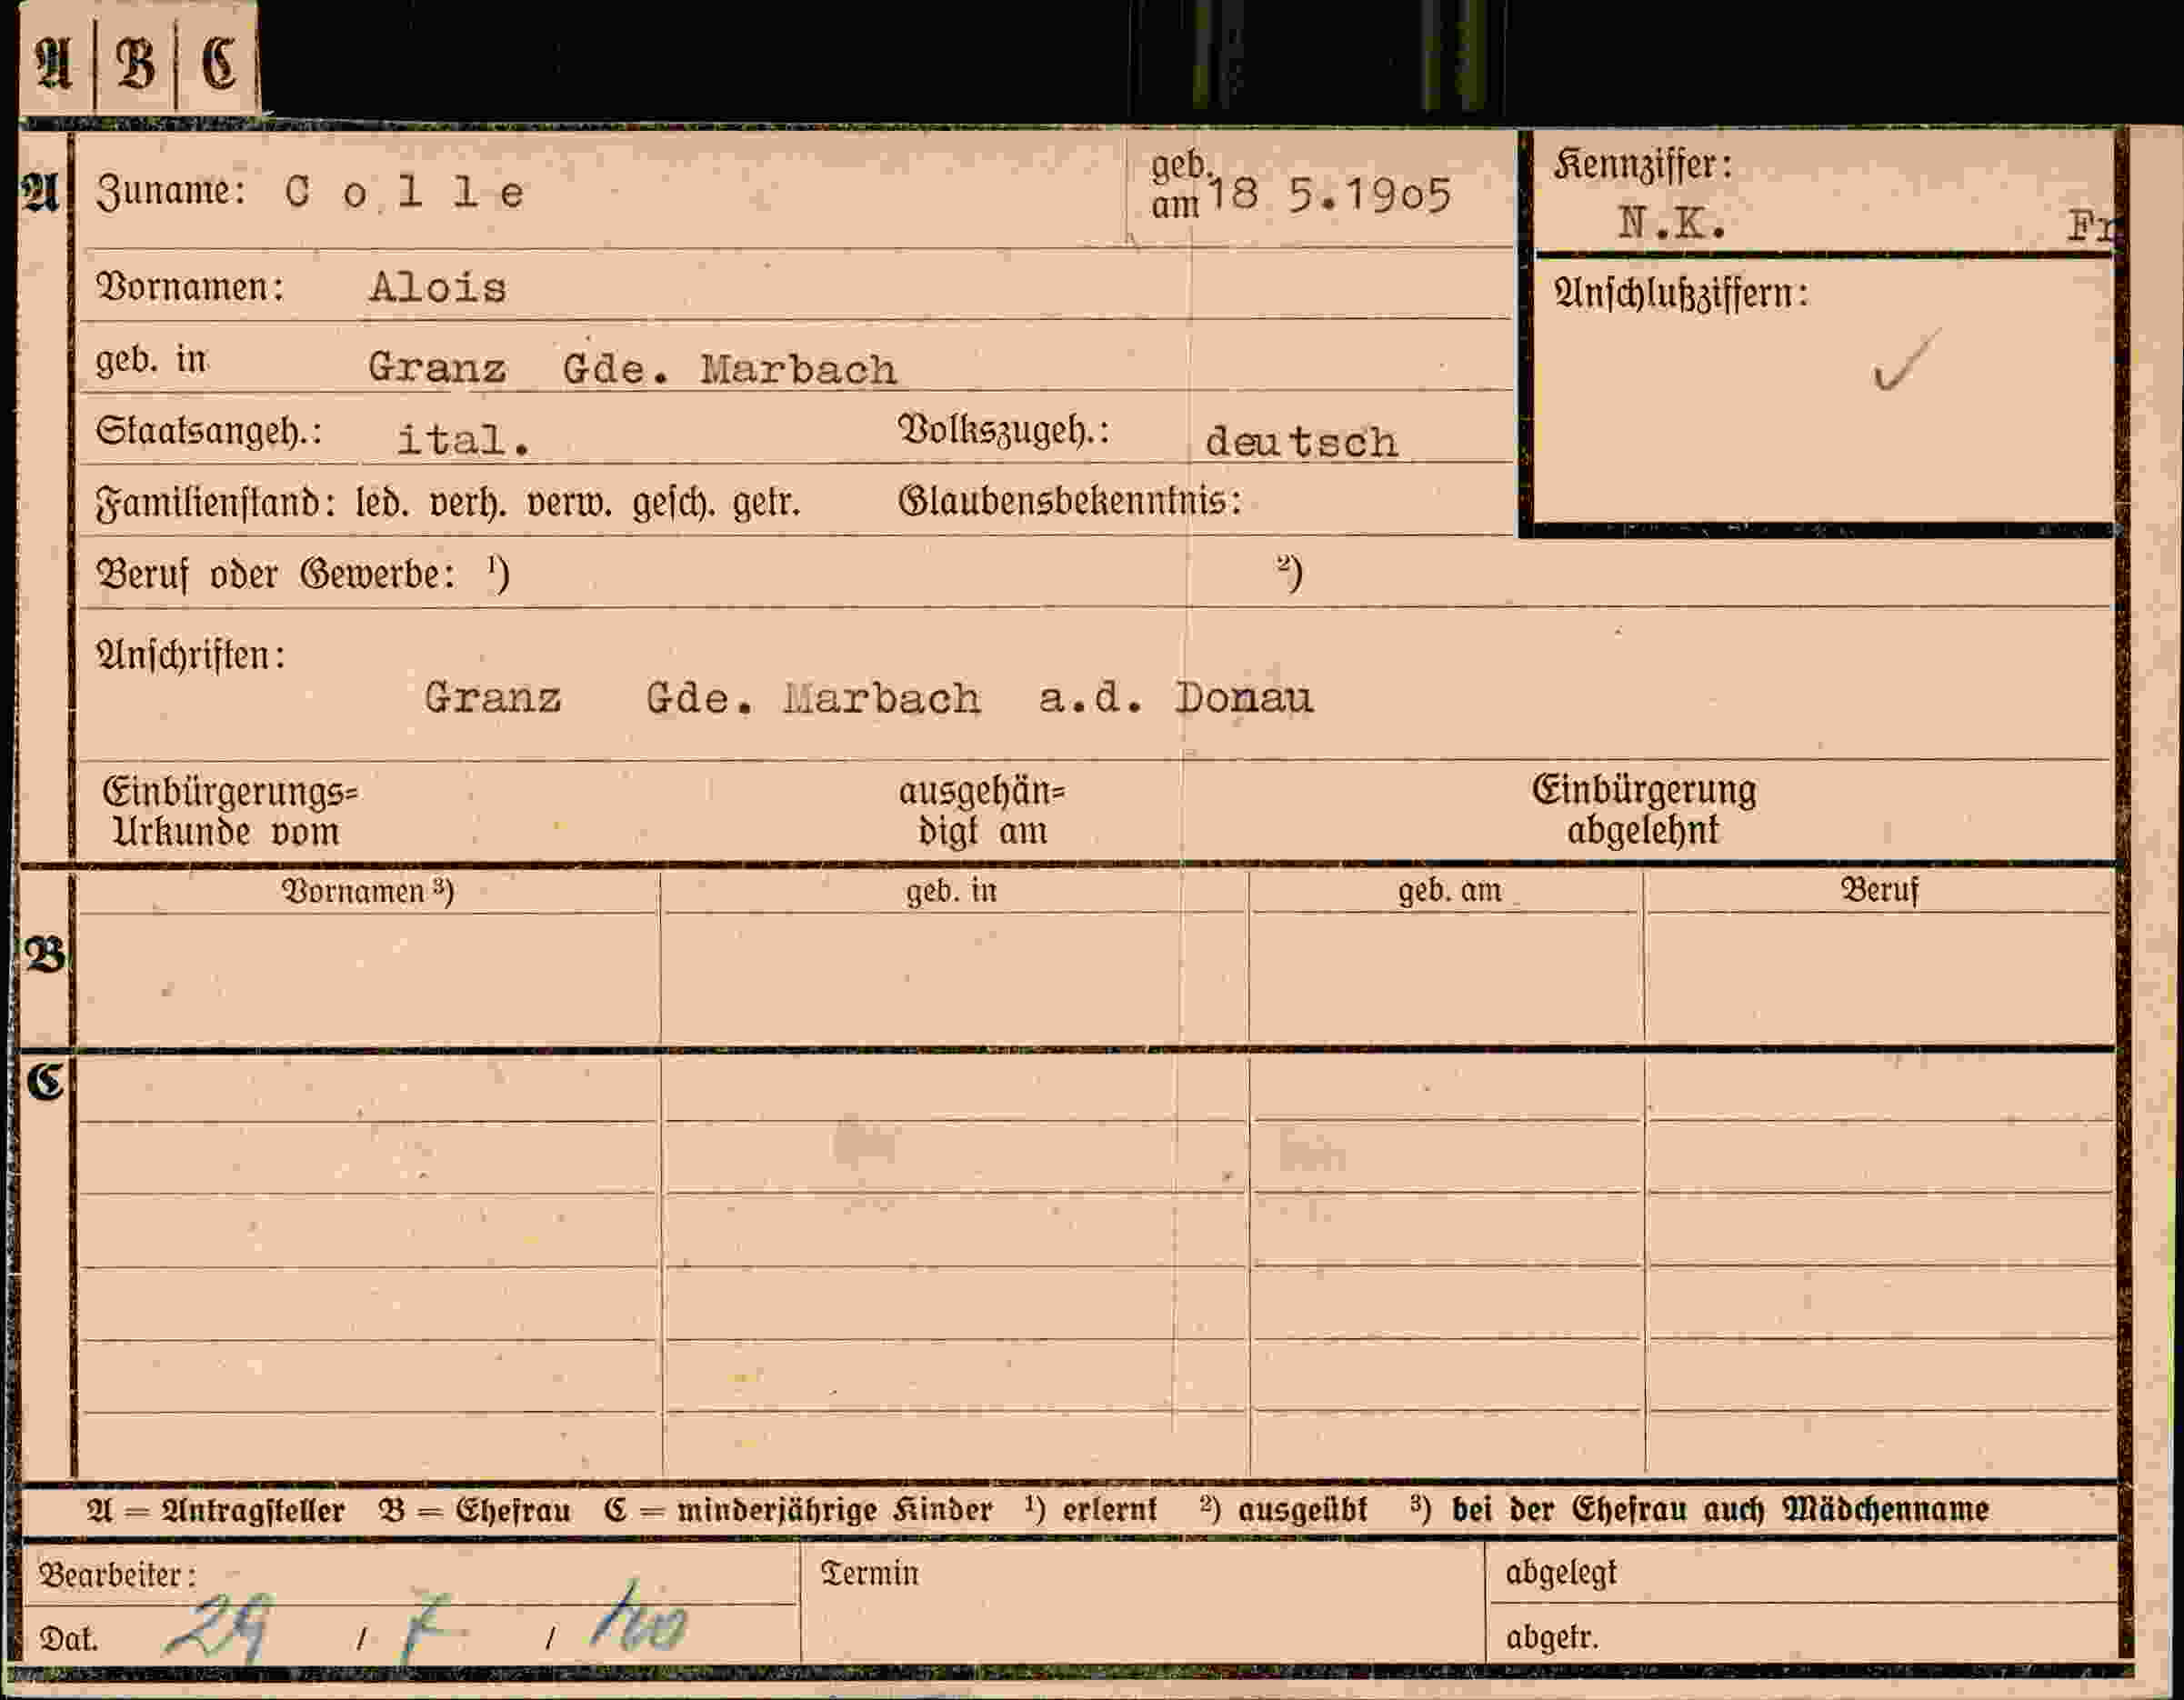 A | B | C
A Zuname: C o l l e geb. am 18 5.1905 Kennziffer:
N.K. Fr
Vornamen: Alois Anschlußziffern:
geb. in Granz Gde. Marbach
Staatsangeh.: ital. Volkszugeh.: deutsch
Familienstand: led. verh. verw. gesch. getr. Glaubensbekenntnis:
Beruf oder Gewerbe: ¹) ²)
Anschriften:
Granz Gde. Marbach a.d. Donau
Einbürgerungs= ausgehän= Einbürgerung
Urkunde vom digt am abgelehnt
Vornamen ³) geb. in geb. am Beruf
B
C
A = Antragsteller B = Ehefrau C = minderjährige Kinder ¹) erlernt ²) ausgeübt ³) bei der Ehefrau auch Mädchenname
Bearbeiter: Termin abgelegt
Dat. 29 / 7 / 40 abgetr.